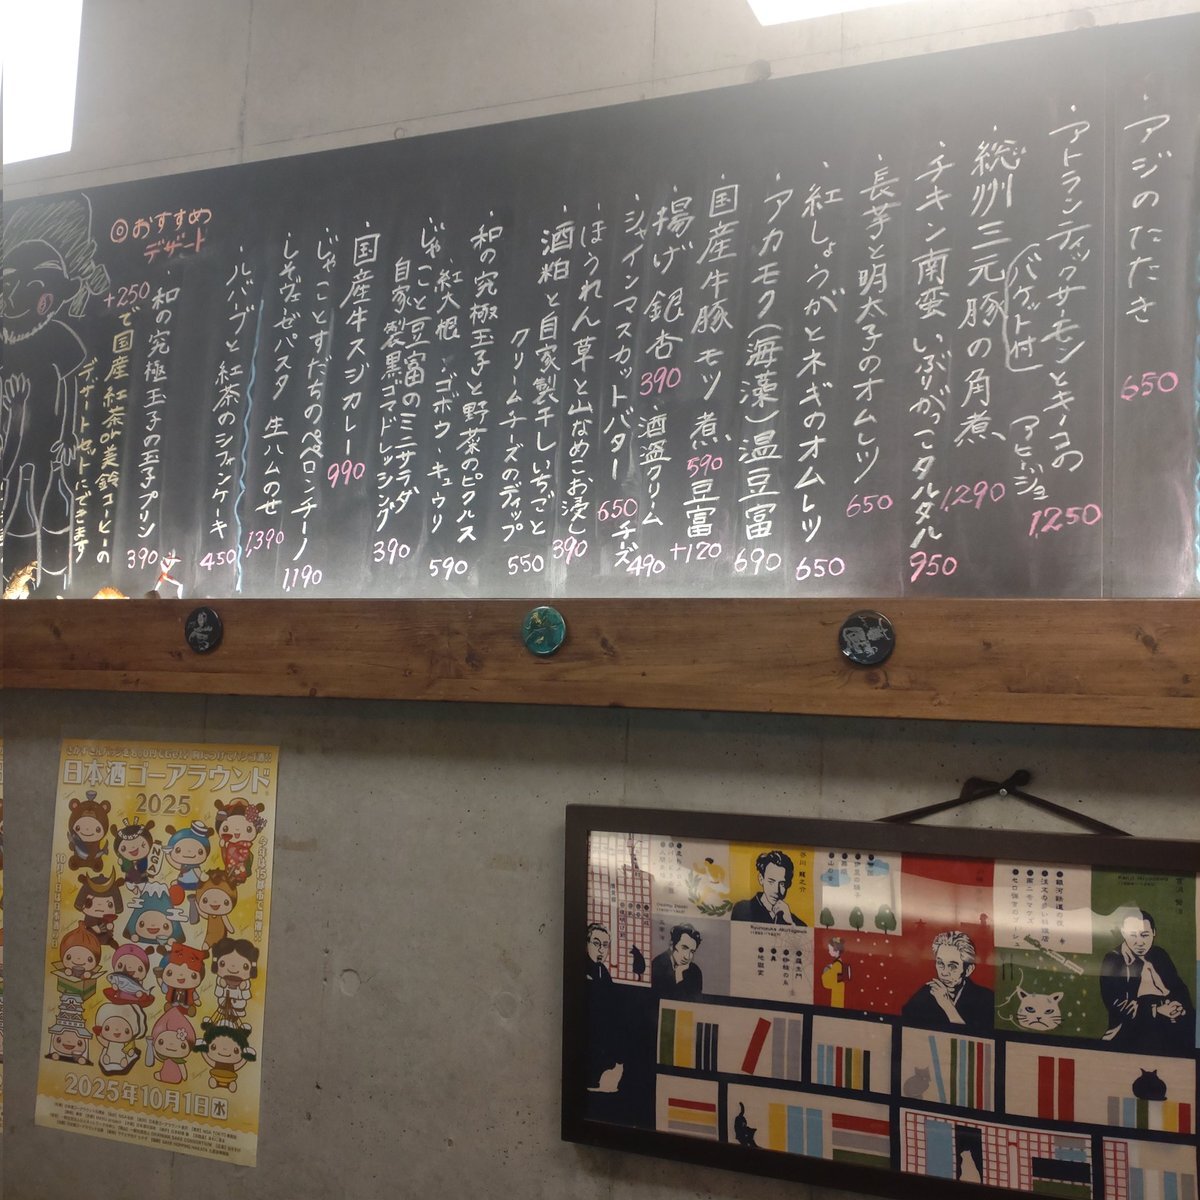 ・アジのたたき 650
・アトランティックサーモンとキノコの
アヒージョ 1,250
(バケット付)
・総州三元豚の角煮 1,290
・チキン南蛮 いぶりがっこタルタル 950
・長芋と明太子のオムレツ 650
・紅しょうがとネギのオムレツ 650
・アカモク(海藻)温豆富 690
・国産牛豚モツ煮 590 豆富 +120
・揚げ銀杏 390 ・酒盗クリームチーズ 490
・シャインマスカットバター 650
・ほうれん草と山なめこお浸し 390
・酒粕と自家製干しいちごと
クリームチーズのディップ 550
・和の究極玉子と野菜のピクルス
・紅大根・ゴボウ・キュウリ 590
・じゃこと豆富のミニサラダ
自家製黒ゴマドレッシング 390
・国産牛スジカレー 990
・じゃことすだちのペペロンチーノ 1,190
・しそヴェゼパスタ 生ハムのせ 1,390
・ルバーブと紅茶のシフォンケーキ 450
◎おすすめ
デザート
・和の究極玉子の玉子プリン 390
+250で国産紅茶or美鈴コーヒーの
デザートセットにできます
日本酒ゴーアラウンド
2025
2025年10月1日水
芥川龍之介
Ryunosuke Akutagawa
●羅生門
●鼻
●蜘蛛の糸
●地獄変
●銀河鉄道の夜
●注文の多い料理店
●セロ弾きのゴーシュ